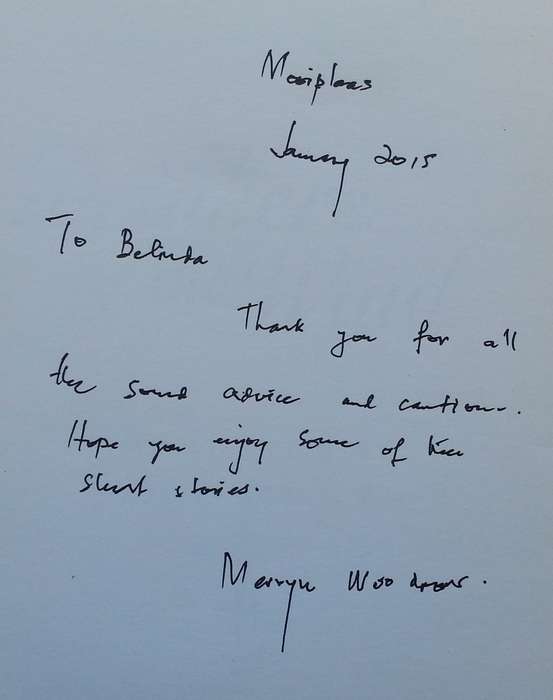 Mooiplaas
January 2015
To Belinda
Thank you for all
the sound advice and caution.
Hope you enjoy some of these
short stories.
Merryn Woodrow.